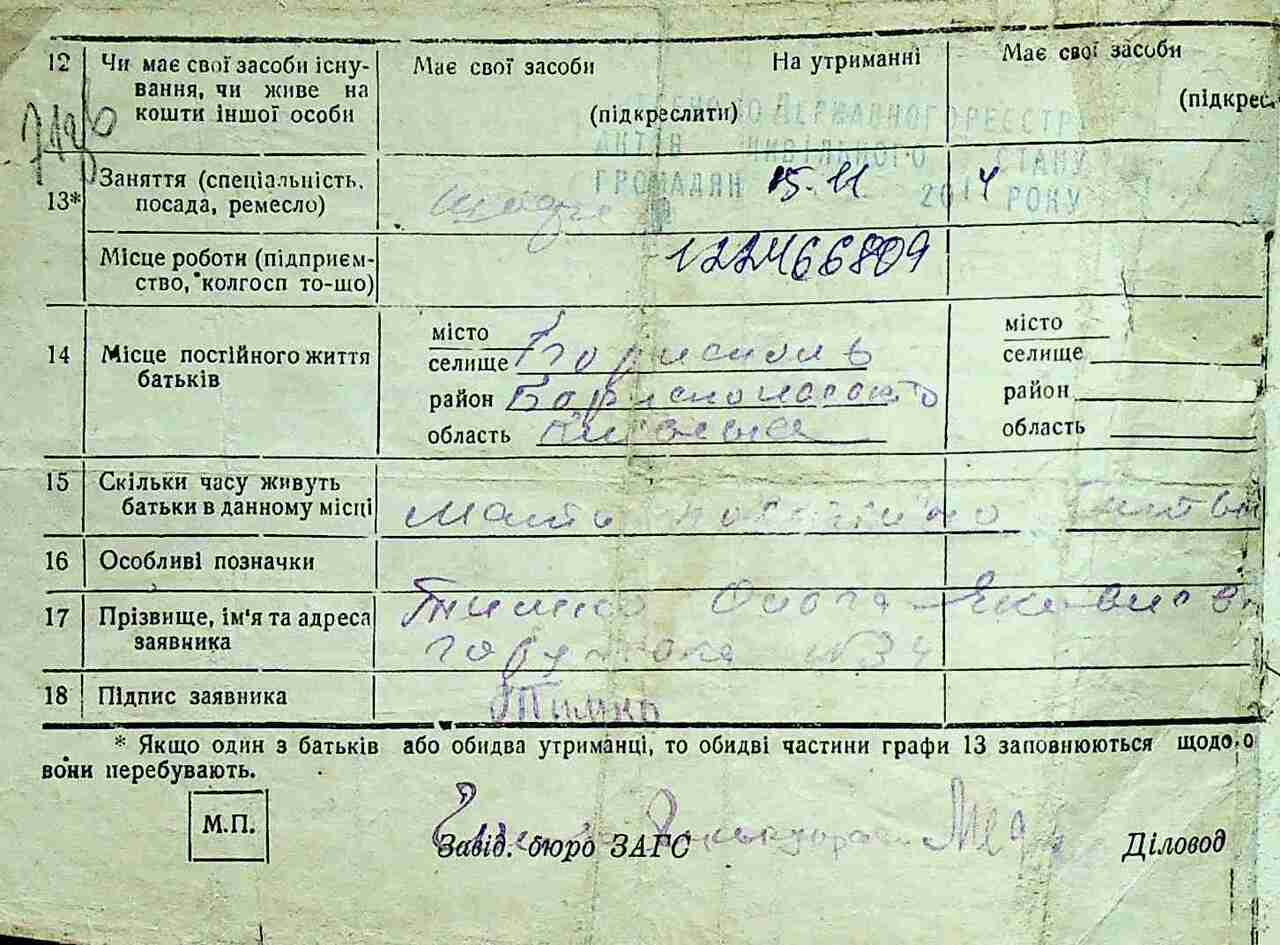 12 Чи має свої засоби існу- Має свої засоби На утриманні Має свої засоби
вання, чи живе на
кошти іншої особи (підкреслити) (підкрес
ДЕРЖАВНОГО РЕЄСТРУ
АКТІВ ЦИВІЛЬНОГО СТАНУ
ГРОМАДЯН 15.11 2014 РОКУ
13* Заняття (спеціальність,
посада, ремесло)
Місце роботи (підприєм- 122466809
ство, колгосп то-що)
14 Місце постійного життя
батьків
місто
селище Бориспіль
район Бориспольського
область Київська
місто
селище
район
область
15 Скільки часу живуть
батьки в данному місці Мати постійно
16 Особливі позначки
17 Прізвище, ім'я та адреса Тимко Ольга Яковлевна
заявника
18 Підпис заявника Тимко
* Якщо один з батьків або обидва утриманці, то обидві частини графи 13 заповнюються щодо о
вони перебувають.
М.П.
Завід. бюро ЗАГС Діловод